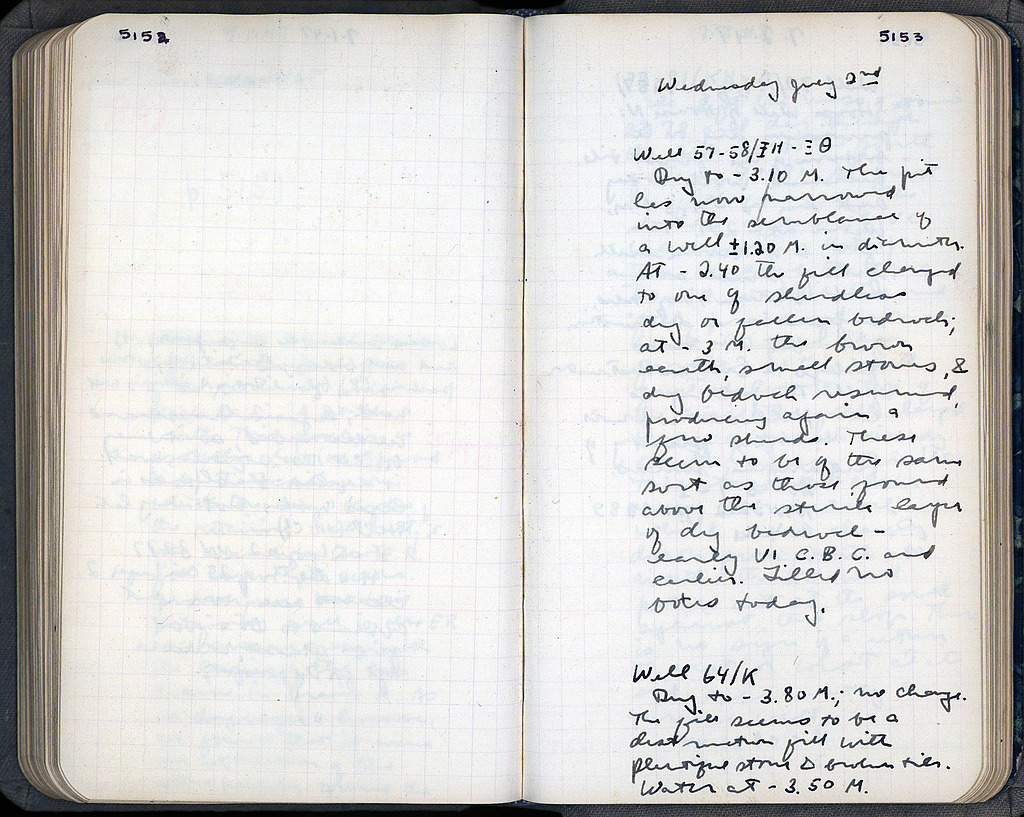 5152
5153
Wednesday July 2nd
Well 57-58/ΞΗ-ΞΘ
Dug to - 3.10 M. The pit
has now narrowed
into the semblance of
a well ±1.20 M. in diameter.
At - 2.40 the fill changed
to one of sherdless
dug or fallen bedrock;
at - 3 M. the brown
earth, small stones, &
dug bedrock resumed,
producing again a
few sherds. These
seem to be of the same
sort as those found
above the sterile layer
of dug bedrock -
early VI C. B. C. and
earlier. Filled no
totes today.
Well 64/K
Dug to - 3.80 M.; no change.
The fill seems to be a
destruction fill with
plentiful stone & broken tiles.
Water at - 3.50 M.